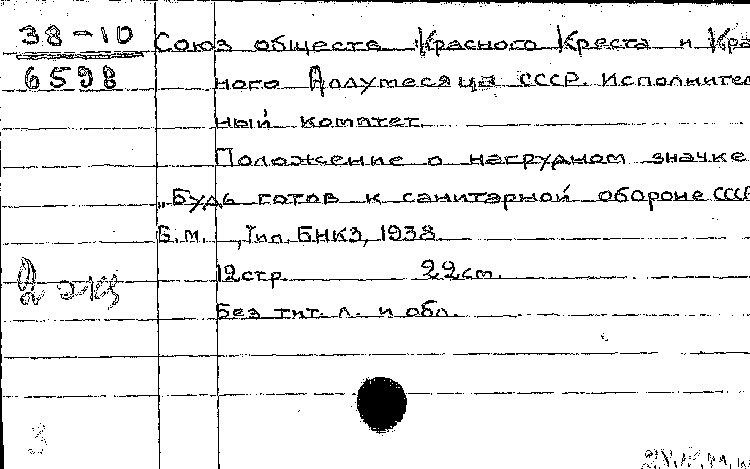 38-10
6598
Союз обществ Красного Креста и Кра
ного Полумесяца СССР. Исполнител
ный комитет.
Положение о нагрудном значке
„Будь готов к санитарной обороне СССР
Б.м., Тип. БНКЗ, 1938.
12стр. 22см.
Без тит. л. и обл.
2 экз
3